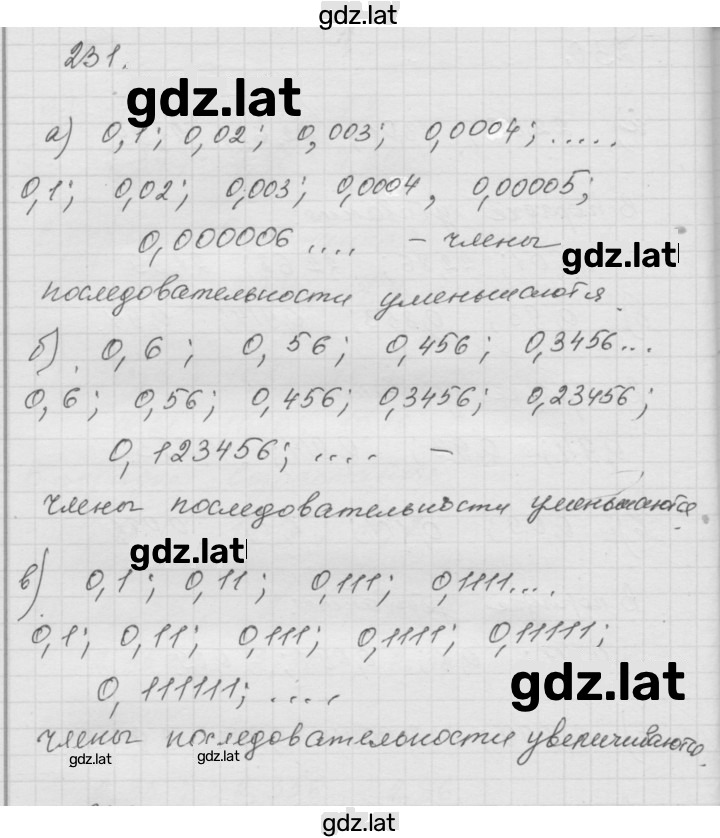 gdz.lat
231.
gdz.lat
а) 0,1; 0,02; 0,003; 0,0004; .....
0,1; 0,02; 0,003; 0,0004, 0,00005;
0,000006 .... – члены
gdz.lat
последовательности уменьшаются.
б) 0,6; 0,56; 0,456; 0,3456...
0,6; 0,56; 0,456; 0,3456; 0,23456;
0,123456; .... –
члены последовательности уменьшаются.
gdz.lat
в) 0,1; 0,11; 0,111; 0,1111....
0,1; 0,11; 0,111; 0,1111; 0,11111;
0,111111; ....
gdz.lat
члены последовательности увеличиваются.
gdz.lat gdz.lat
gdz.lat